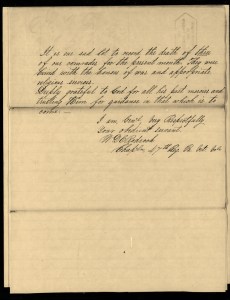 It is our sad lot to record the death of three
of our comrades for the present month. They were
buried with the honors of war and appropriate
religious services.
Humbly grateful to God for all his past mercies and
trusting Him for guidance in that which is to
I am Genl, Very Respectfully
Your obedient servant.
W. D. C.
Chaplain, 47th Reg. Pa. Vet. Vols.